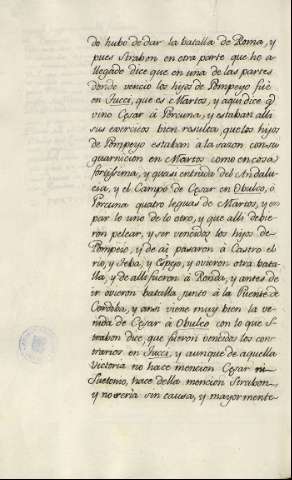 de hubo de dar la batalla de Roma, y
pues Strabon en otra parte que ho a
llegado dice que en una de las partes
donde vencio los hijos de Pompeyo fue
en Tucci, que es Martos, y aqui dice q
vino Cesar á Porcuna, y estaban alli
sus exercitos bien resulta, que los hijos
de Pompeyo estaban á la sazon con su
guarnicion en Martos como en cosa
fortissima, y quasi entrada del Andalu
cia, y el Campo de Cesar en Obulco, ó
Porcuna quatro leguas de Martos, y en
par lo uno de lo otro, y que alli debie
ron pelear, y ser vencidos los hijos de
Pompeio, y de ai pasaron á Castro el
rio, y Teba, y Espejo, y ovieron otra bata
lla, y de alli fueron á Ronda, y antes de
ir ovieron batalla junto á la Puente de
Cordoba, y ansi viene muy bien la ve
nida de Cesar á Obulco con lo que S
trabon dice, que fueron vencidos los con
trarios en Tucci, y aunque de aquella
Victoria no hace mencion Cesar ni
Suetonio, hace della mencion Strabon,
y no seria sin causa, y mayormente